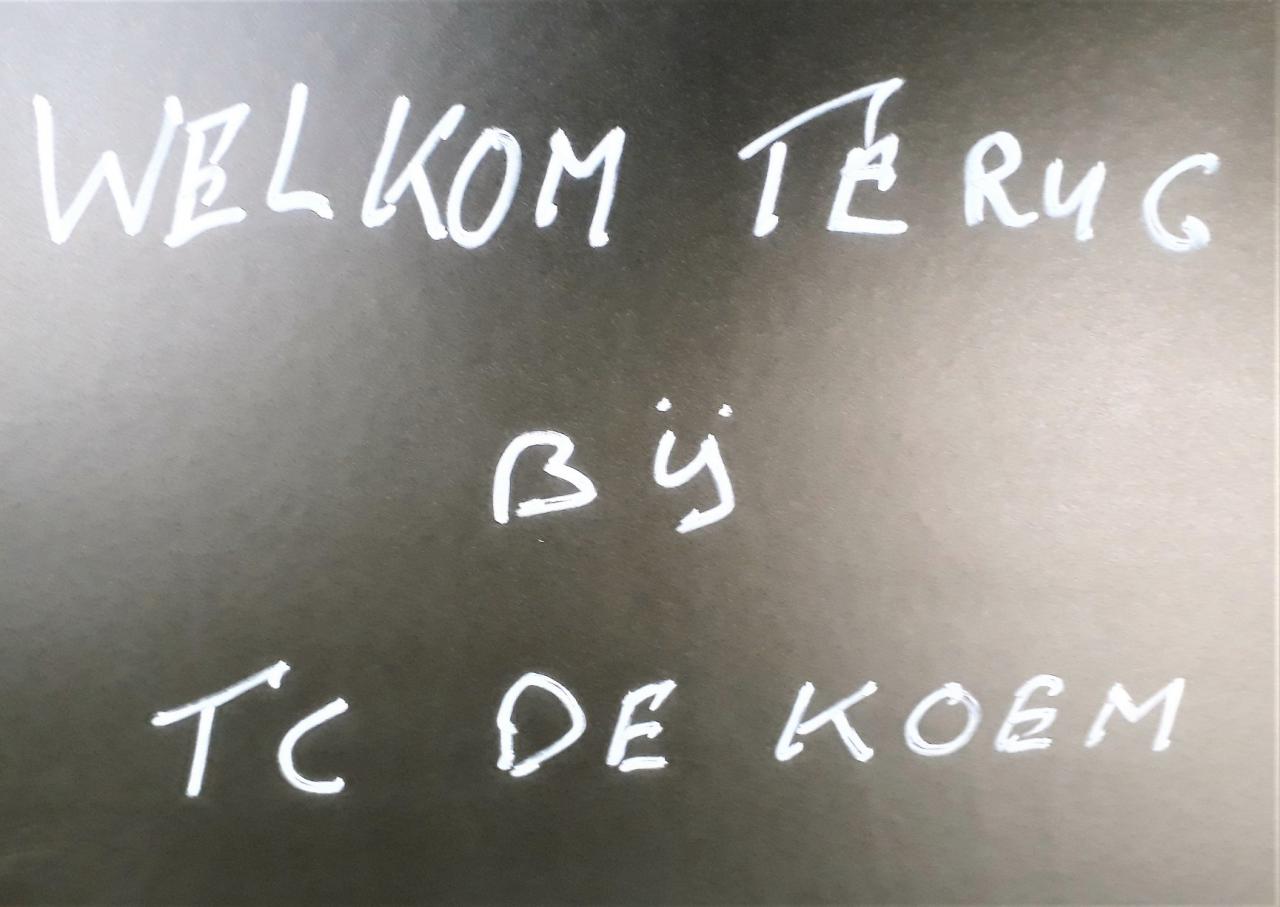 WELKOM TERUG
Bij
TC DE KOEM